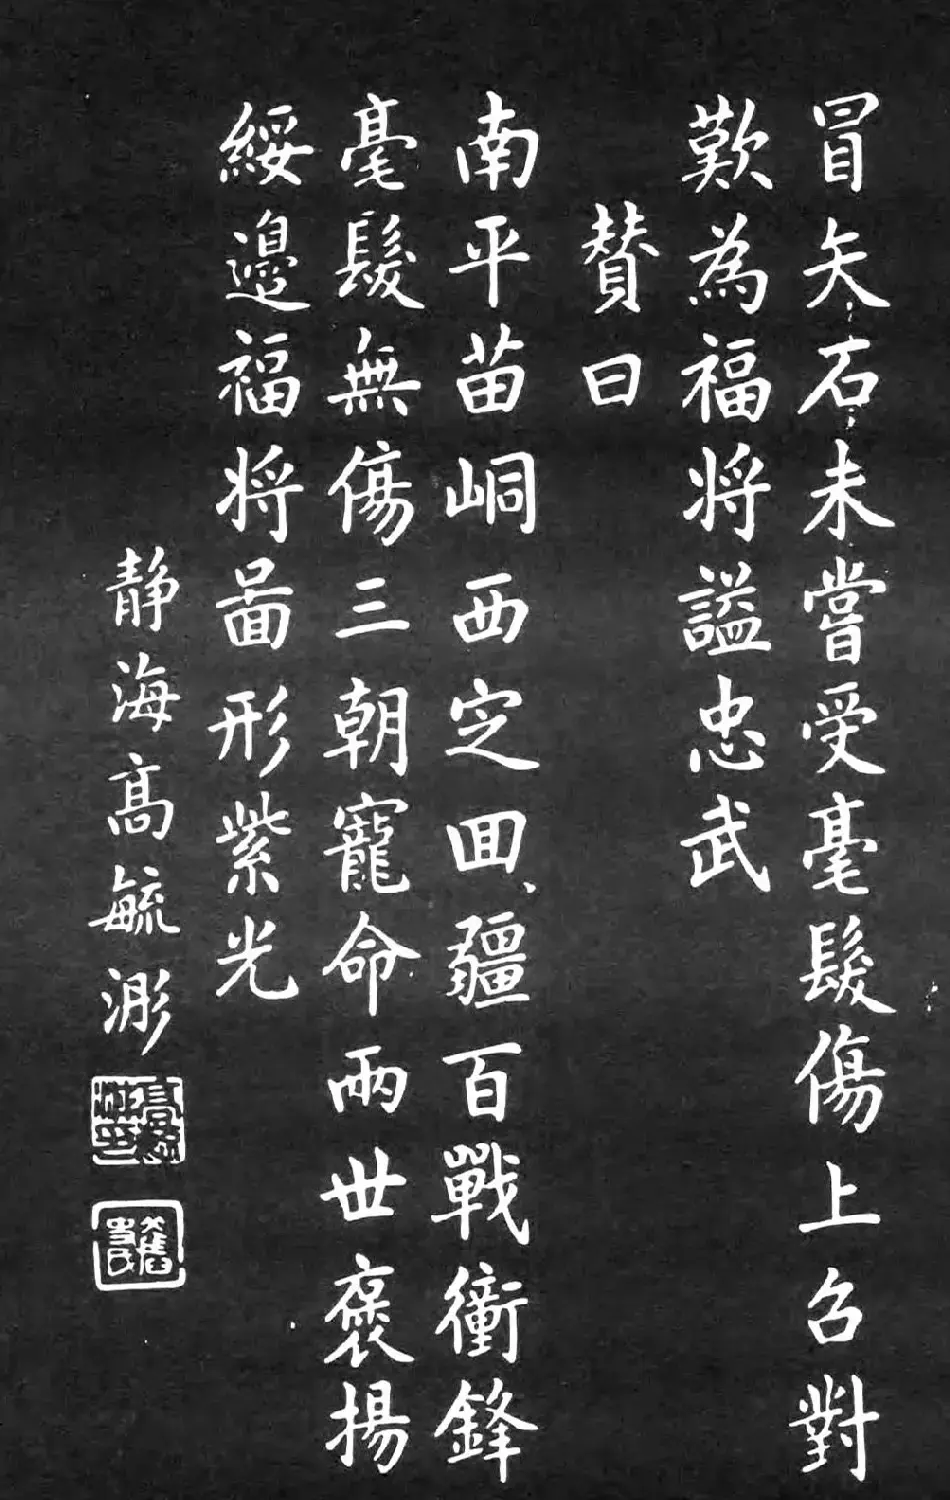 冒矢石未嘗受毫髮傷上召對
歎為福將謚忠武
賛曰
南平苗峒西定回疆百戰衝鋒
毫髮無傷三朝寵命兩世褒揚
綏邊福將啚形紫光
静海高毓浵